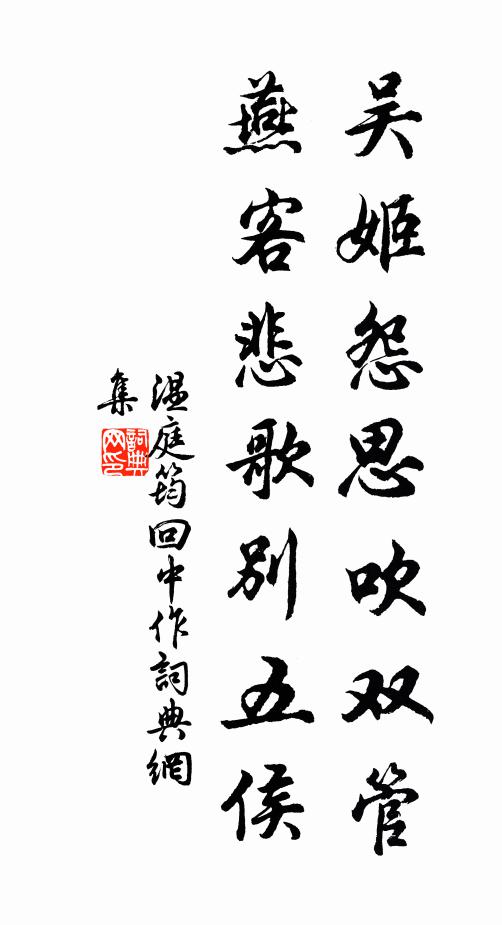 吴姬怨思吹双管
燕客悲歌别五侯
温庭筠回中作词典網
集
詞典
网印